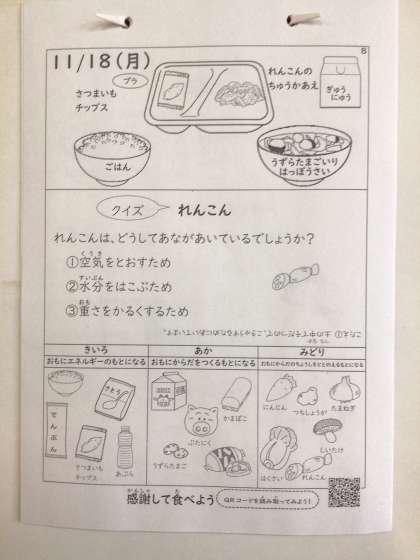 8
11/18(月)
プラ
さつまいも
チップス
れんこんの
ちゅうかあえ
ぎゅう
にゅう
ごはん
うずらたまごいり
はっぽうさい
クイズ
れんこん
れんこんは、どうしてあながあいているでしょうか?
①空気をとおすため
くうき
②水分をはこぶため
すいぶん
③重さをかるくするため
おも
きいろ
あか
みどり
おもにエネルギーのもとになる
おもにからだをつくるもとになる
おもにからだのちょうしをととのえるもとになる
さとう
でんぷん
さつまいも
チップス
あぶら
かまぼこ
ぶたにく
うずらたまご
にんじん
つちしょうが
たまねぎ
しいたけ
はくさい
れんこん
かんしゃ
た
感謝して食べよう
QRコードを読み取ってみよう!